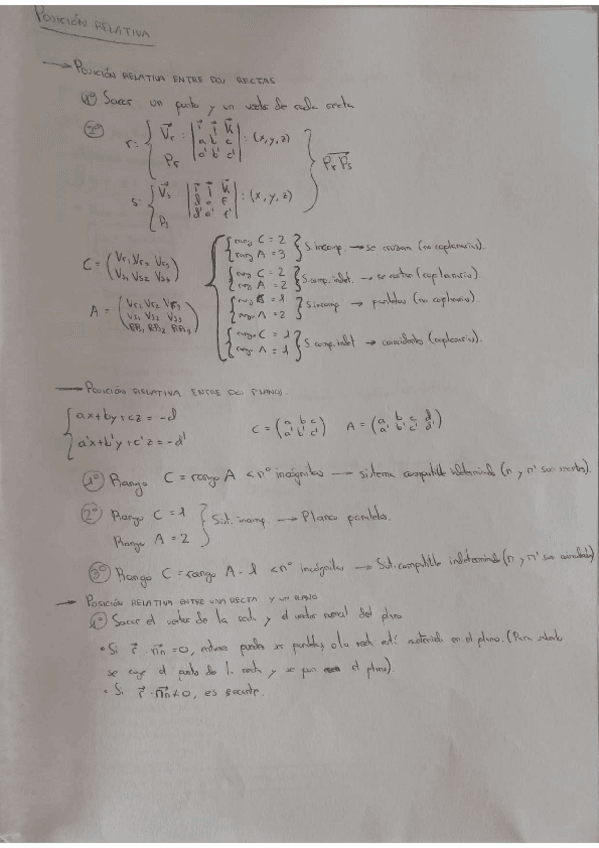 POSICIÓN RELATIVA
→ POSICIÓN RELATIVA ENTRE DOS RECTAS
1º Sacar un punto y un vector de cada recta
2º
r: { Vr : | i j k ; a b c ; a' b' c' | : (x, y, z)
Pr
PrPs
s: { Vs | i j k ; d e f ; d' e' f' | : (x, y, z)
Ps
C = ( Vr1 Vr2 Vr3 ; Vs1 Vs2 Vs3 )
A = ( Vr1 Vr2 Vr3 ; Vs1 Vs2 Vs3 ; )
{ rang C = 2 ; rang A = 3 } S. incomp. → se cruzan (no coplanarios).
{ rang C = 2 ; rang A = 2 } S. comp. indet. → se cortan (coplanarios).
{ rang C = 1 ; rang A = 2 } S. incomp → paralelas (no coplanarios).
{ rango C = 1 ; rango A = 1 } S. comp. indet → coincidentes (coplanarios).
→ POSICIÓN RELATIVA ENTRE DOS PLANOS.
{ ax + by + cz = -d
a'x + b'y + c'z = -d'
C = ( a b c ; a' b' c' ) A = ( a b c d ; a' b' c' d' )
1º Rango C = rango A < nº incógnitas → sistema compatible indeterminado (π y π' son secantes).
2º Rango C = 1
Rango A = 2 } Sist. incomp. → Planos paralelos.
3º Rango C = rango A = 1 < nº incógnitas → Sist. compatible indeterminado (π y π' son coincidentes).
→ POSICIÓN RELATIVA ENTRE UNA RECTA Y UN PLANO
1º Sacar el vector de la recta y el vector normal del plano
• Si r · nπ = 0, entonces pueden ser paralelas o la recta está contenida en el plano. (Para saberlo
se coge el punto de la recta y se pon en el plano).
• Si r · nπ ≠ 0, es secante.